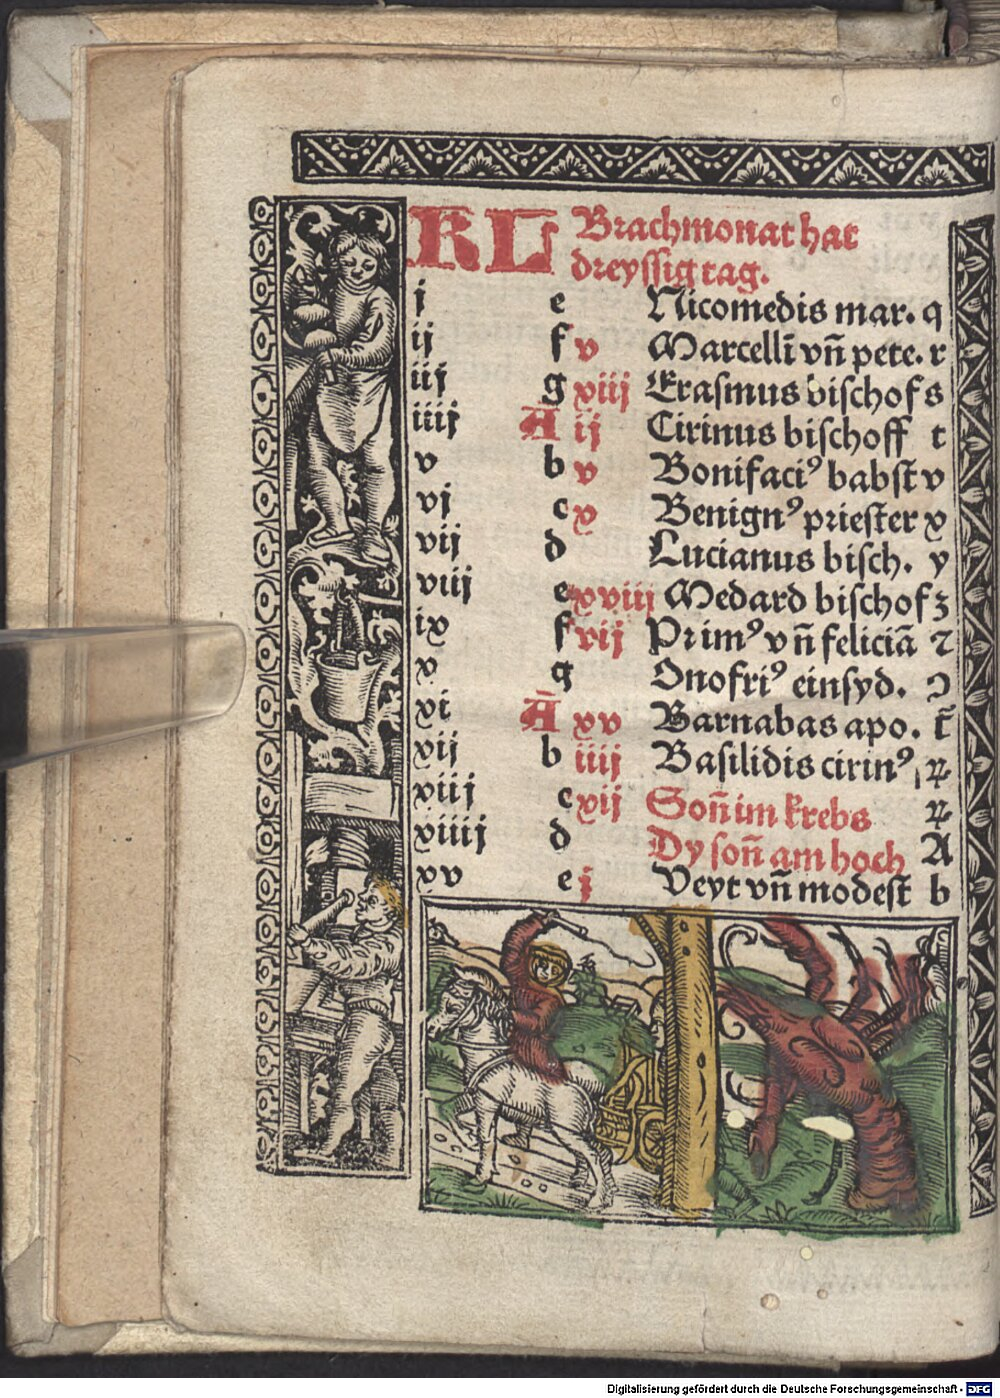 KL Brachmonat hat
dreyssig tag.
j e Nicomedis mar. q
ij f v Marcellī vn̄ pete. r
iij g xiij Erasmus bischof s
iiij A ij Cirinus bischoff t
v b v Bonifaciꝰ babst v
vj c x Benignꝰ priester x
vij d Lucianus bisch. y
viij e xviij Medard bischof z
ix f vij Primꝰ vn̄ feliciā ⁊
x g Onofriꝰ einsyd. ꝯ
xi A xv Barnabas apo. t̄
xij b iiij Basilidis cirinꝰ
xiij c xij Son̄ im krebs
xiiij d Dy son̄ am hoch A
xv e j Veyt vn̄ modest b
Digitalisierung gefördert durch die Deutsche Forschungsgemeinschaft - DFG